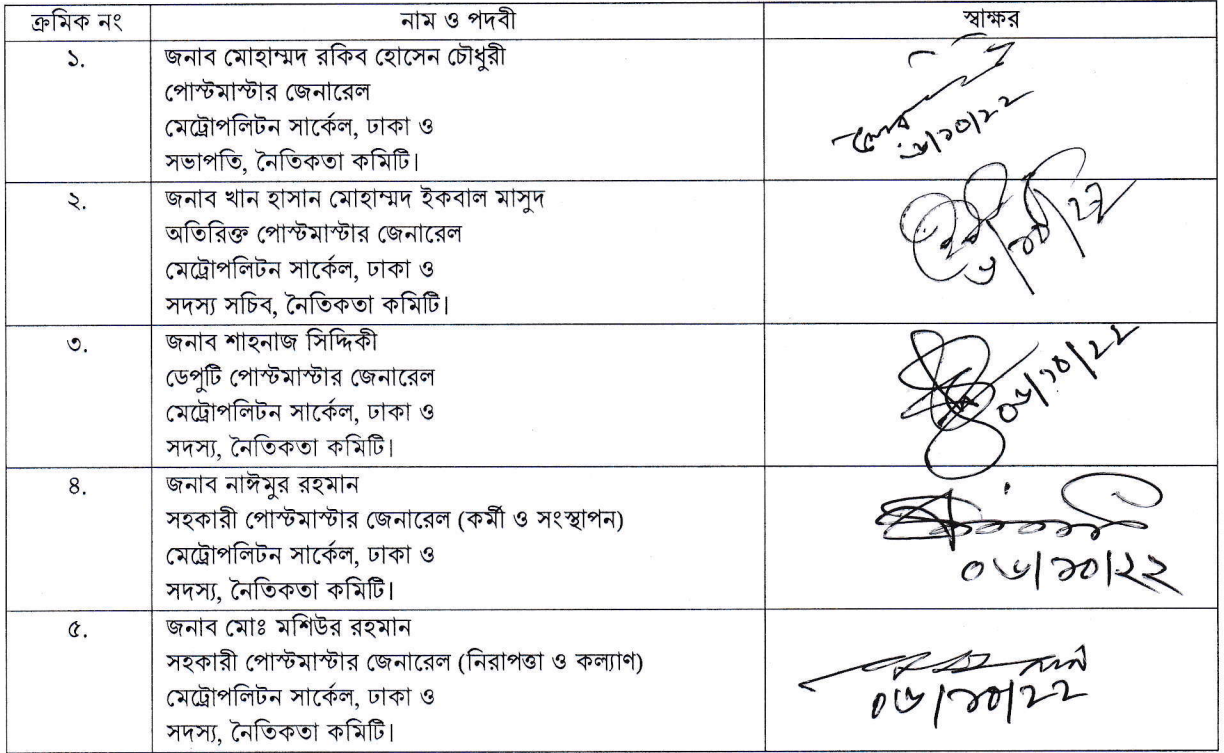 ক্রমিক নং নাম ও পদবী স্বাক্ষর
১. জনাব মোহাম্মদ রকিব হোসেন চৌধুরী
পোস্টমাস্টার জেনারেল
মেট্রোপলিটন সার্কেল, ঢাকা ও
সভাপতি, নৈতিকতা কমিটি।
৬/১০/২২
২. জনাব খান হাসান মোহাম্মদ ইকবাল মাসুদ
অতিরিক্ত পোস্টমাস্টার জেনারেল
মেট্রোপলিটন সার্কেল, ঢাকা ও
সদস্য সচিব, নৈতিকতা কমিটি।
৩. জনাব শাহনাজ সিদ্দিকী
ডেপুটি পোস্টমাস্টার জেনারেল
মেট্রোপলিটন সার্কেল, ঢাকা ও
সদস্য, নৈতিকতা কমিটি।
০৬/১০/২২
৪. জনাব নাঈমুর রহমান
সহকারী পোস্টমাস্টার জেনারেল (কর্মী ও সংস্থাপন)
মেট্রোপলিটন সার্কেল, ঢাকা ও
সদস্য, নৈতিকতা কমিটি।
০৬/১০/২২
৫. জনাব মোঃ মশিউর রহমান
সহকারী পোস্টমাস্টার জেনারেল (নিরাপত্তা ও কল্যাণ)
মেট্রোপলিটন সার্কেল, ঢাকা ও
সদস্য, নৈতিকতা কমিটি।
০৬/১০/২২